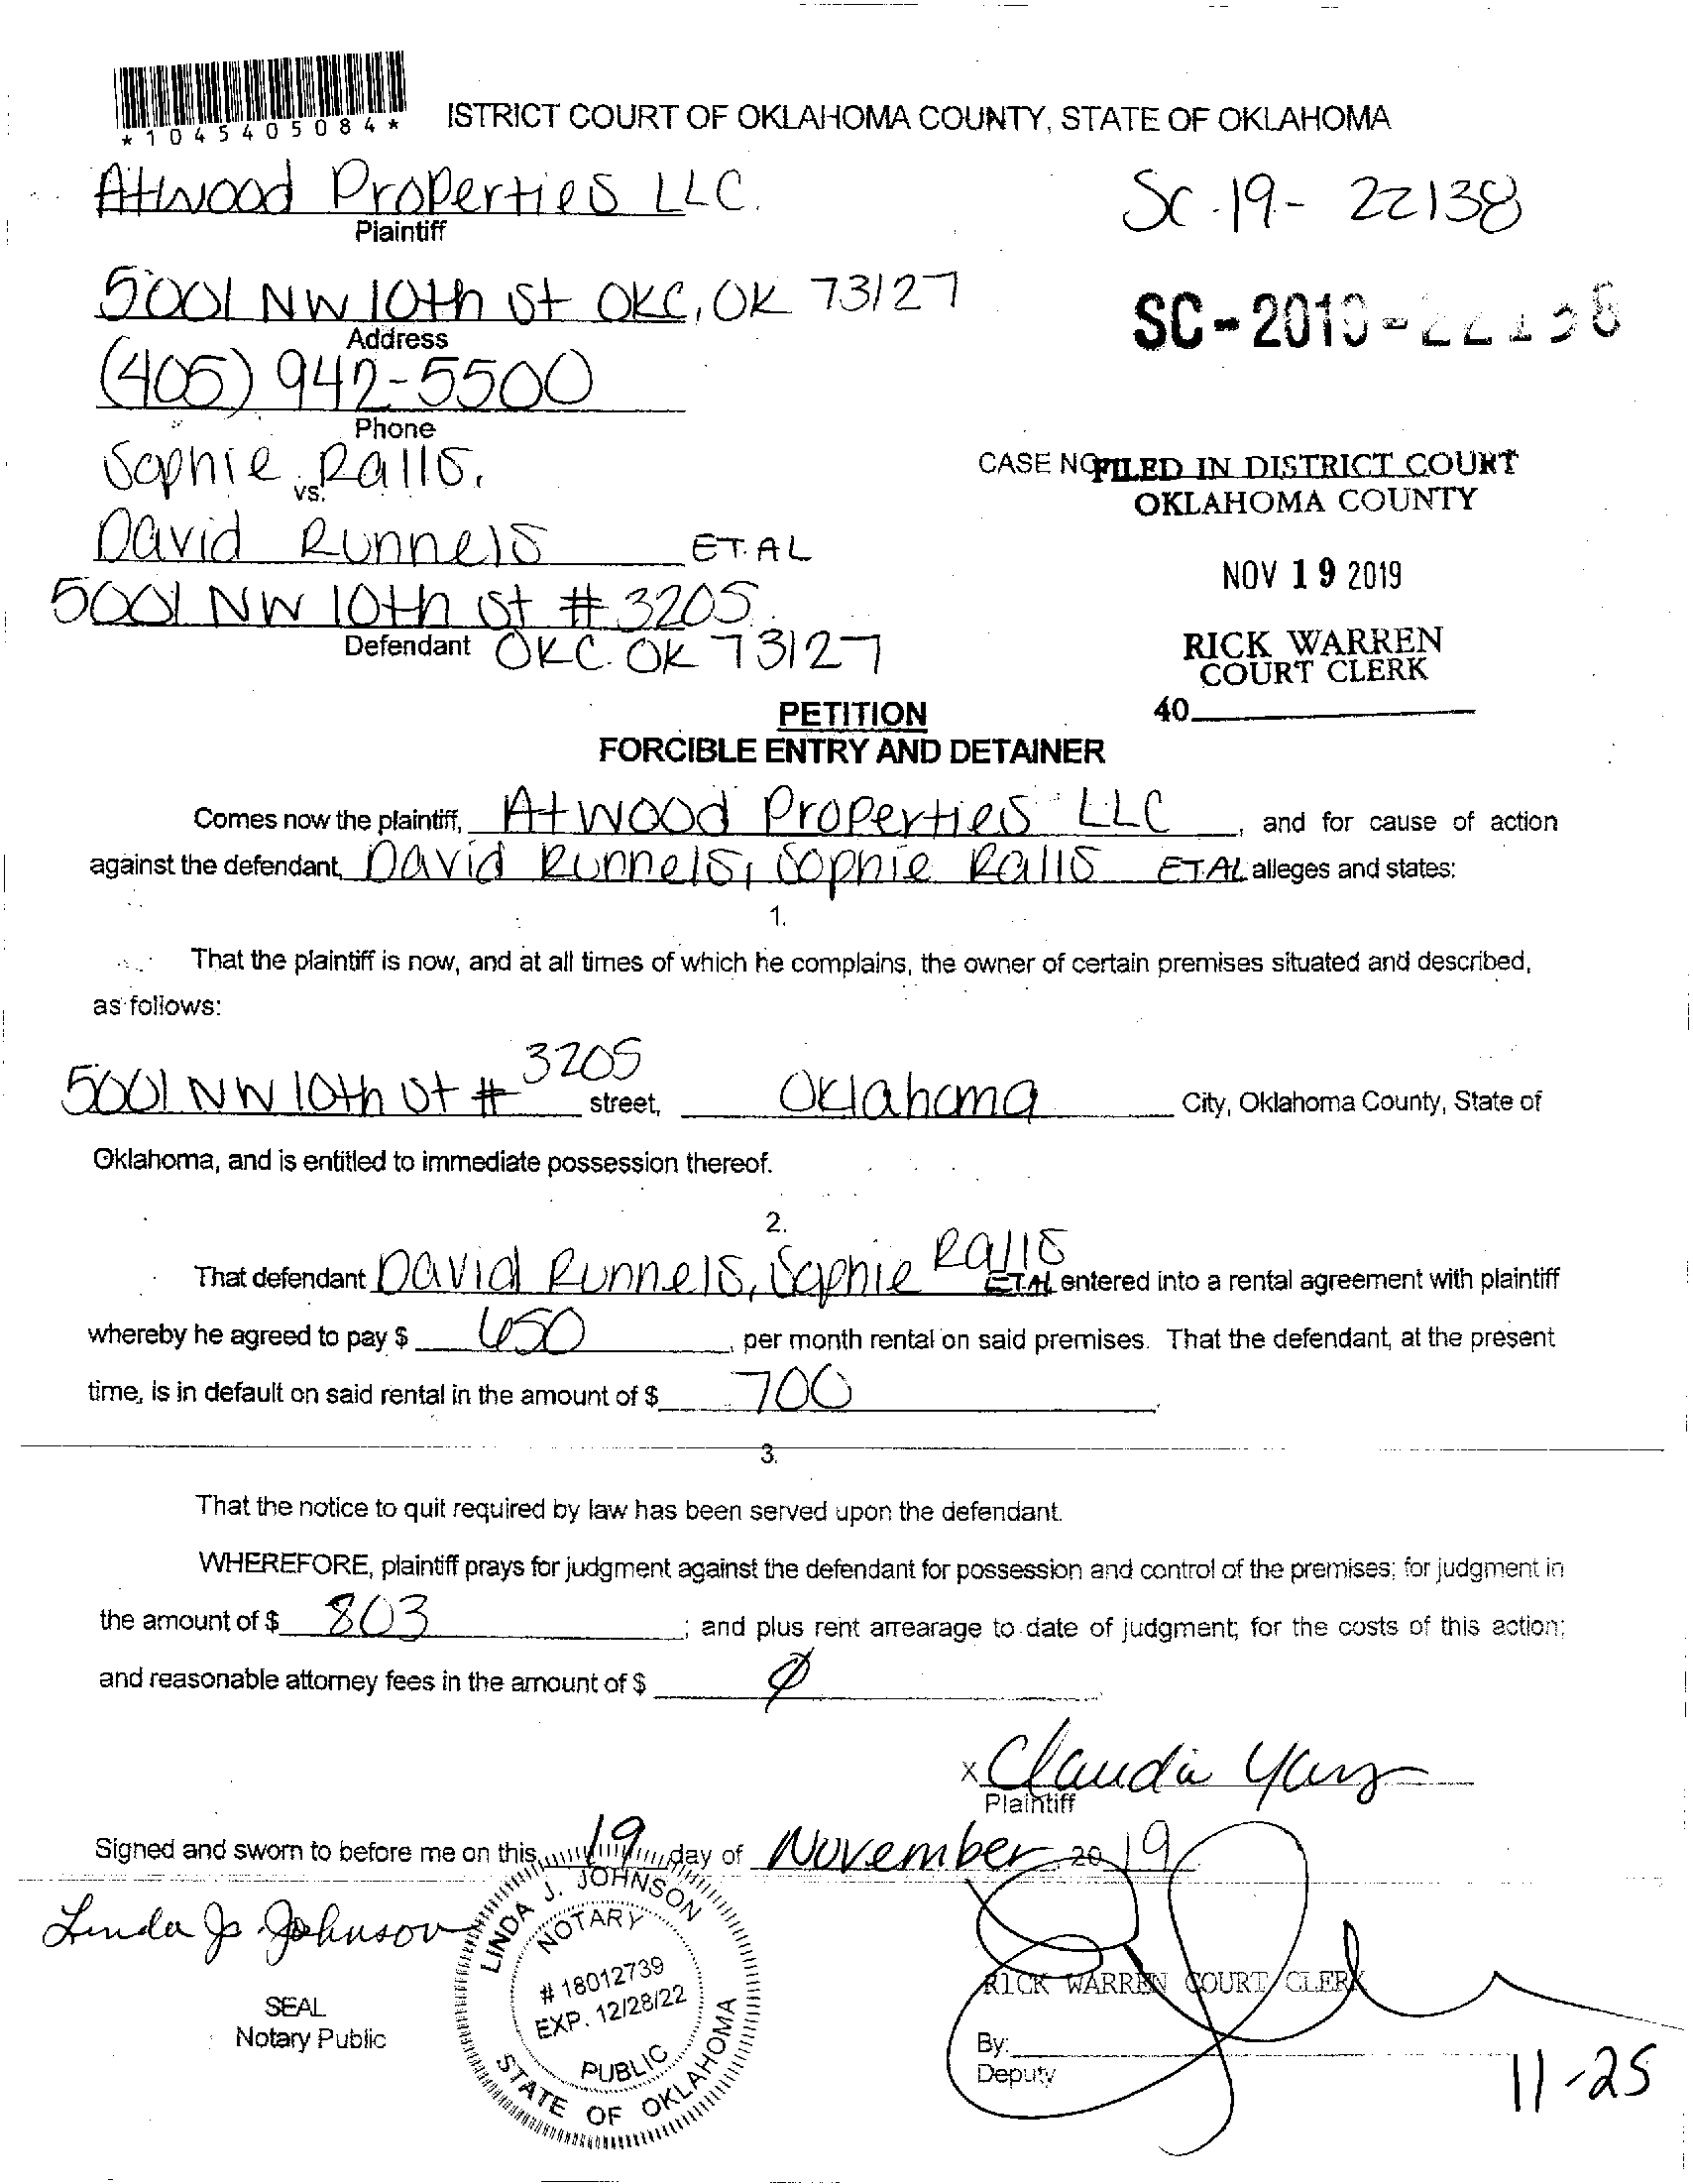 *1045405084*
ISTRICT COURT OF OKLAHOMA COUNTY, STATE OF OKLAHOMA
Atwood Properties LLC.
Plaintiff
SC-19-22138
5001 NW 10th St OKC, OK 73127
Address
SC-2019-22138
(405) 942-5500
Phone
Sophie Ralls.
vs.
CASE NO
FILED IN DISTRICT COURT
OKLAHOMA COUNTY
David Runnels ET.AL
NOV 19 2019
5001 NW 10th St # 3205
Defendant OKC. OK 73127
RICK WARREN
COURT CLERK
40
PETITION
FORCIBLE ENTRY AND DETAINER
Comes now the plaintiff, Atwood Properties LLC, and for cause of action
against the defendant, David Runnels, Sophie Ralls ET.AL alleges and states:
1.
That the plaintiff is now, and at all times of which he complains, the owner of certain premises situated and described,
as follows:
5001 NW 10th St # 3205 street, Oklahoma City, Oklahoma County, State of
Oklahoma, and is entitled to immediate possession thereof.
2.
That defendant David Runnels, Sophie Ralls ET.AL entered into a rental agreement with plaintiff
whereby he agreed to pay $ 650, per month rental on said premises. That the defendant, at the present
time, is in default on said rental in the amount of $ 700.
3.
That the notice to quit required by law has been served upon the defendant.
WHEREFORE, plaintiff prays for judgment against the defendant for possession and control of the premises; for judgment in
the amount of $ 803; and plus rent arrearage to date of judgment; for the costs of this action;
and reasonable attorney fees in the amount of $ Ø
x Claudia
Plaintiff
Signed and sworn to before me on this 19 day of November 2019
Linda J. Johnson
LINDA J. JOHNSON
NOTARY
# 18012739
EXP. 12/28/22
PUBLIC
STATE OF OKLAHOMA
SEAL
Notary Public
RICK WARREN COURT CLERK
By:
Deputy
11-25